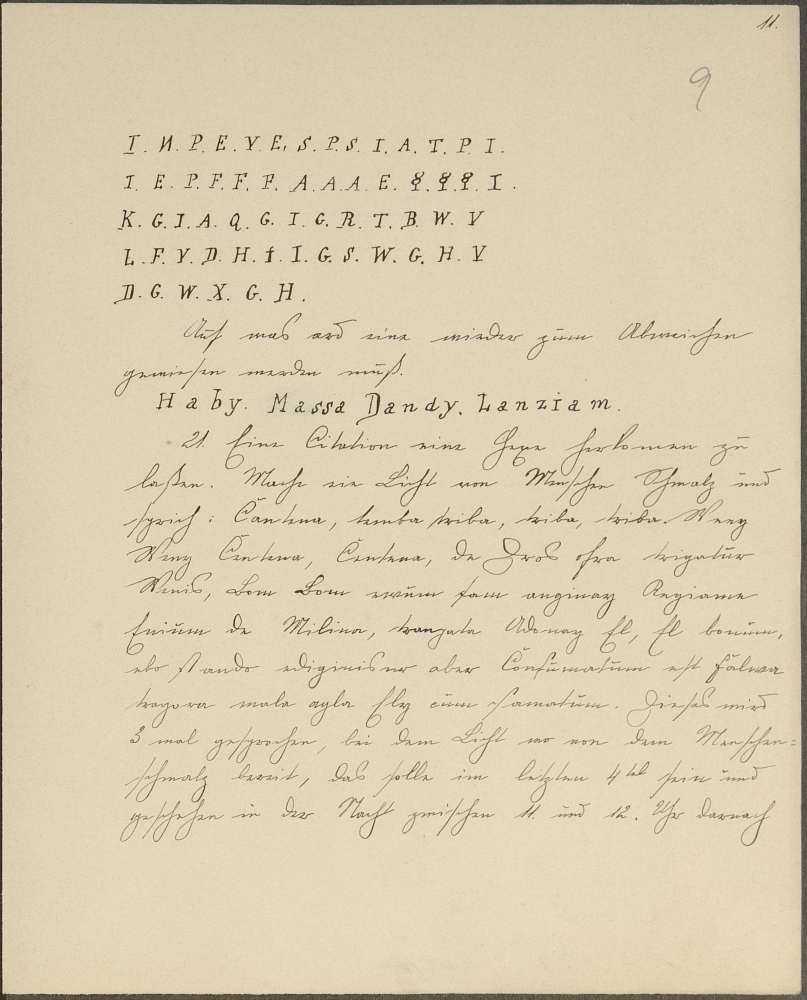 11.
9
I. N. P. E. V. E. S. P. S. I. A. T. P. I.
I. E. P. F. F. F. A. A. A. E. I.
K. G. I. A. Q. G. I. G. R. T. B. W. V
L. F. V. D. H. †. I. G. S. W. G. H. V
D. G. W. X. G. H.
Auf was eine wieder zum Abweichen
gewiesen werden muß.
Haby. Massa Dandy. Lanziam.
21. Eine Citation eine Hexe herkomen zu
laßen. Mache ein Licht von Menschen Schmalz und
sprich: Cantena, temba triba, triba, triba. Weny
Weny Centena, Centena, de Dros ofra trigatur
Wenis, Bom Bom ewum fam anginay Regiame
Enium de Milina, tranzata Adonay El, El bonum,
ebo stando ediginiser aber Consumatum est Falwa
tragora mala agla Ely cum samatum. Dieses wird
3 mal gesprochen, bei dem Licht wo von dem Menschen=
schmalz bereit, das solle im letzten 4tel sein und
geschehen in der Nacht zwischen 11. und 12. Uhr darnach